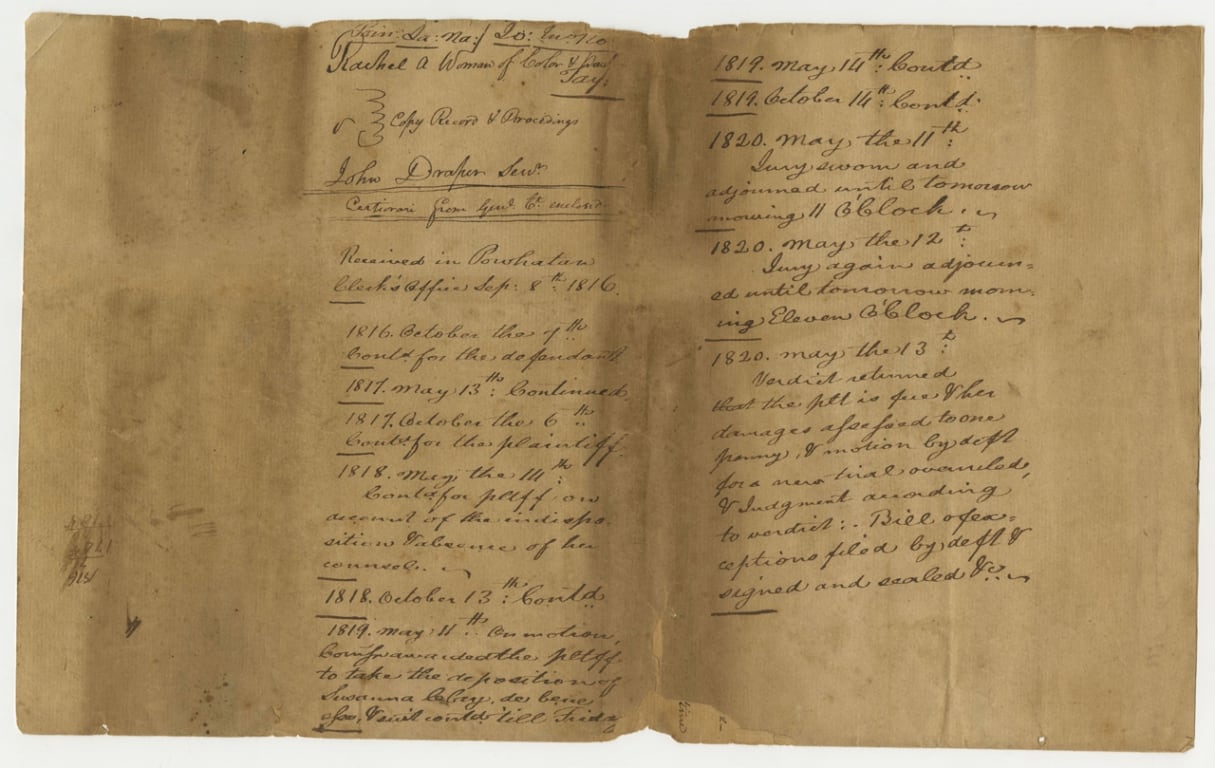 Rachel A Woman of Color &
v
Copy Record & Proceedings
John Draper Senr.
Certiorari from Genl. Ct. enclosed
Received in Powhatan
Clerk's Office Sep: 8th: 1816.
1816. October the 9th
Contd. for the defendant
1817. May 13th: Continued.
1817. October the 6th
Contd. for the plaintiff.
1818. May the 14th:
Contd. for pltff on
account of the indispo-
sition & absence of her
counsel.
1818. October 13th: Contd
1819. May 11th: On motion,
Comsn awarded the pltff.
to take the deposition of
Susanna Clay, de bene
esse, & suit contd till Frida
1819. May 14th: Contd
1819. October 14th: Contd.
1820. May the 11th:
Jury sworn and
adjourned until tomorrow
morning 11 O'Clock.
1820. May the 12t:
Jury again adjourn=
ed until tomorrow morn-
ing Eleven O'Clock.
1820. May the 13t:
Verdict returned
that the plt is free & her
damages assessed to one
penny, & motion by deft
for a new trial overruled,
& Judgment according
to verdict:. Bill of ex=
ceptions filed by deft &
signed and sealed &c.